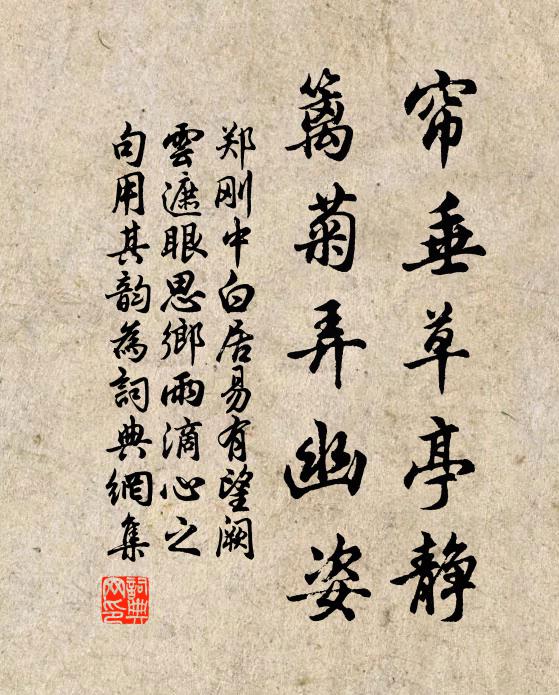 帘垂草亭静
篱菊弄幽姿
郑刚中白居易有望阙
雲遮眼思鄉雨滴心之
句用其韵為詞典網集
詞典網印